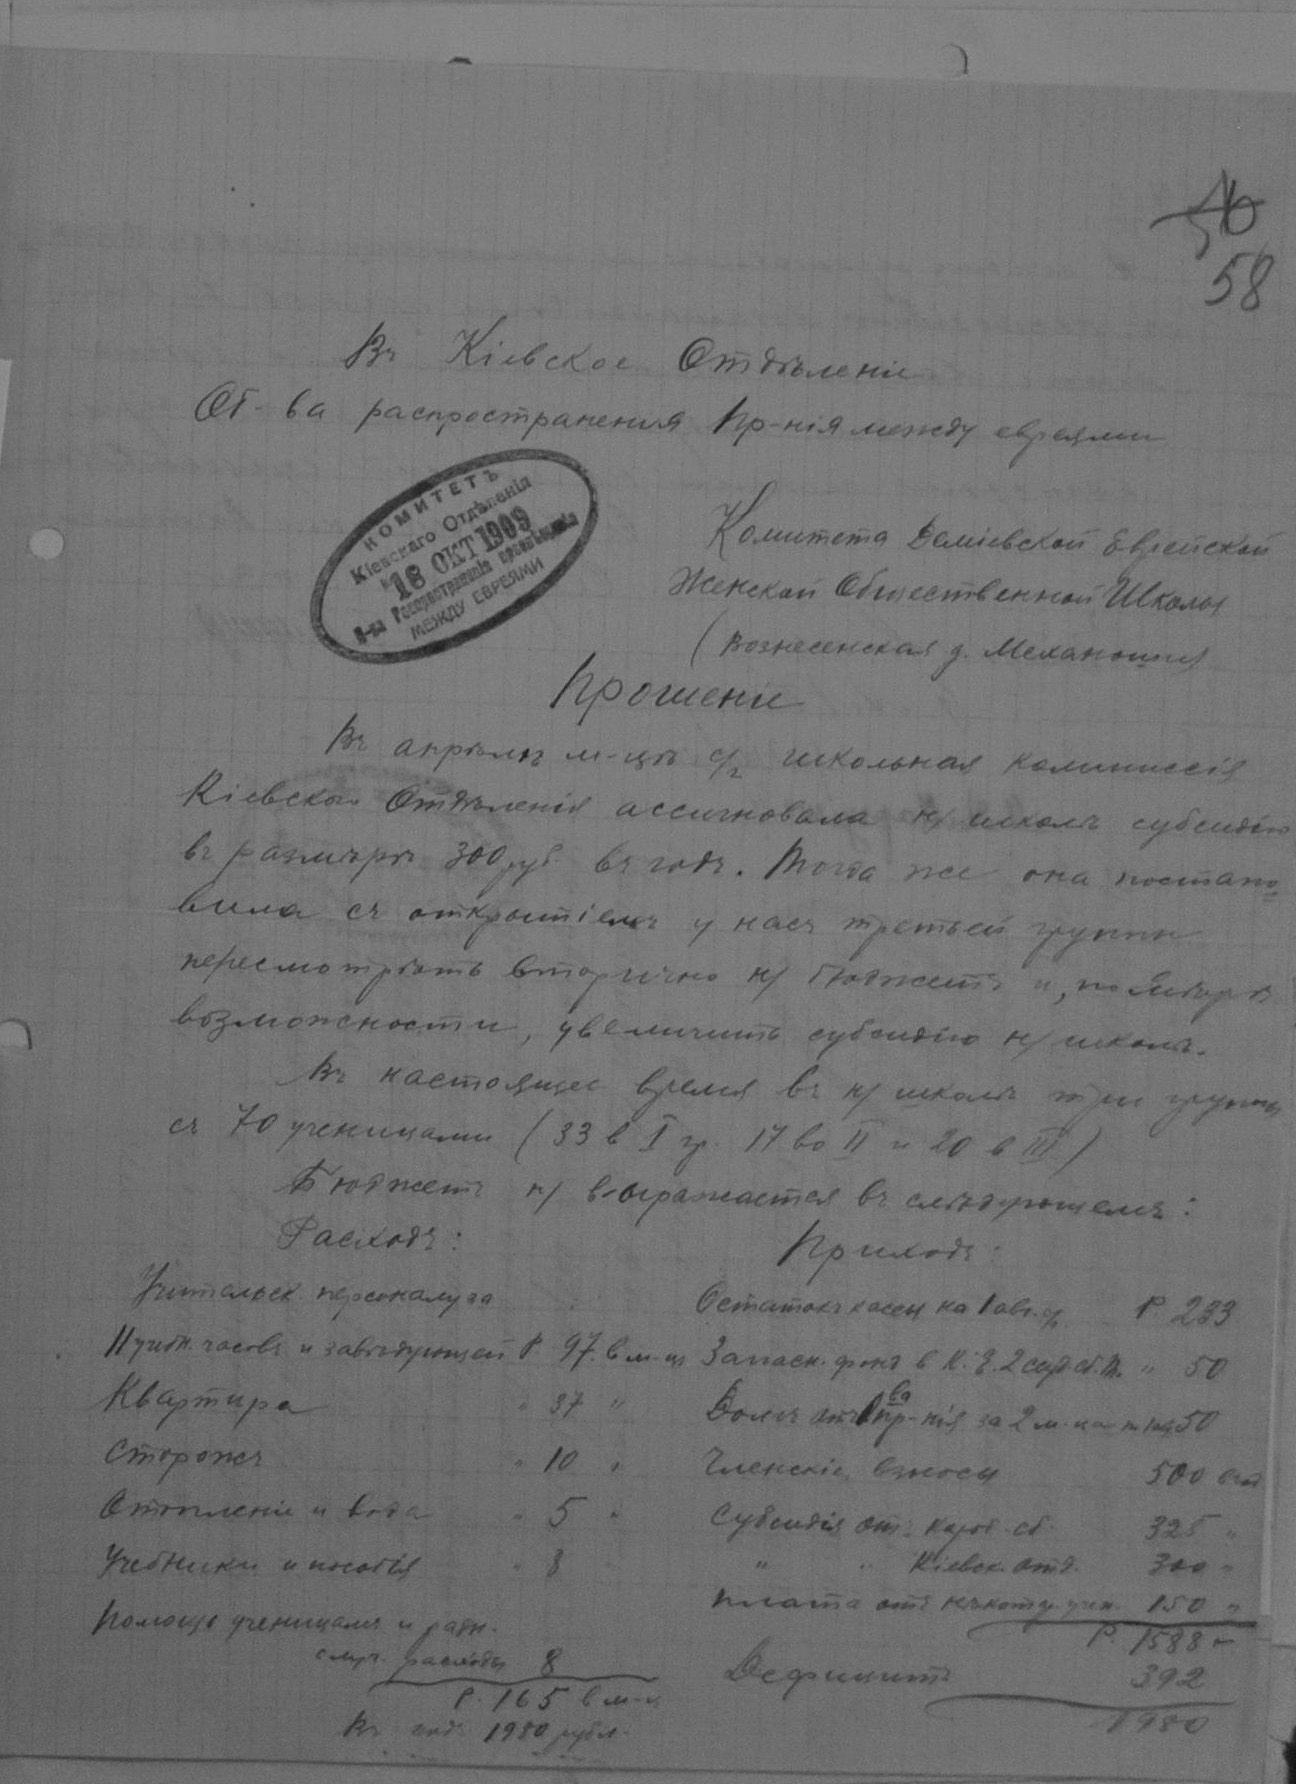 56
58
Въ Кіевское Отдѣленіе
Об-ва распространенія Пр-нія между евреями
КОМИТЕТЪ
Кіевскаго Отдѣленія
18 ОКТ 1909
О-ва Распространенія просвѣщенія
МЕЖДУ ЕВРЕЯМИ
Комитета Деміевской Еврейской
Женской Общественной Школы
(Вознесенская д.
Прошеніе
Въ апрѣлѣ м-цѣ с/г школьная коммиссія
Кіевскаго Отдѣленія ассигновала н/ школѣ субсидію
въ размѣрѣ 300 руб. въ годъ. Тогда же она постано
вила съ открытіемъ у насъ третьей группы
пересмотрѣть вторично н/ бюджетъ и, по мѣрѣ
возможности, увеличить субсидію н/ школѣ.
Въ настоящее время въ н/ школѣ три группы
съ 70 ученицами (33 в I гр. 17 во II и 20 в III)
Бюджетъ н/ выражается въ слѣдующемъ:
Расходъ:
Приходъ:
Учительск. персоналу за
11 учебн. часовъ и завѣдующей Р. 97. в м-цъ
Квартира " 37 "
Сторожъ " 10 "
Отопленіе и вода " 5 "
Учебники и пособія " 8
Помощь ученицамъ и разн.
случ. расходы 8
Р. 165 в м-ц
Въ годъ 1980 рубл.
Остатокъ кассы на 1 авг. с/г. Р. 233
Запасн. фондъ в 50
Долгъ отъ Об-ва Пр-нія за 2 м-ца 50
Членскіе взносы 500 в год
Субсидія отъ короб. сб. 325 "
" " Кіевск. отд. 300 "
Плата отъ нѣкотор. учен. 150 "
Р. 1588 -
Дефицитъ 392
1980